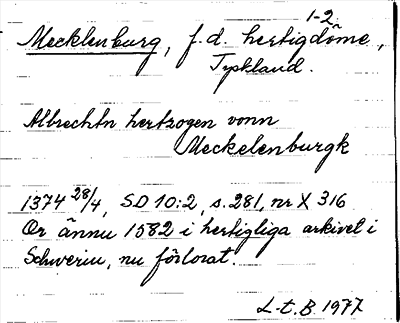 1-2
Mecklenburg, f.d. hertigdöme,
Tyskland.
Albrechtn hertzogen vonn
Meckelenburgk
1374 28/4, SD 10:2, s. 281, nr X 316
Or ännu 1582 i hertigliga arkivet i
Schwerin, nu förlorat.
L-t. B. 1977